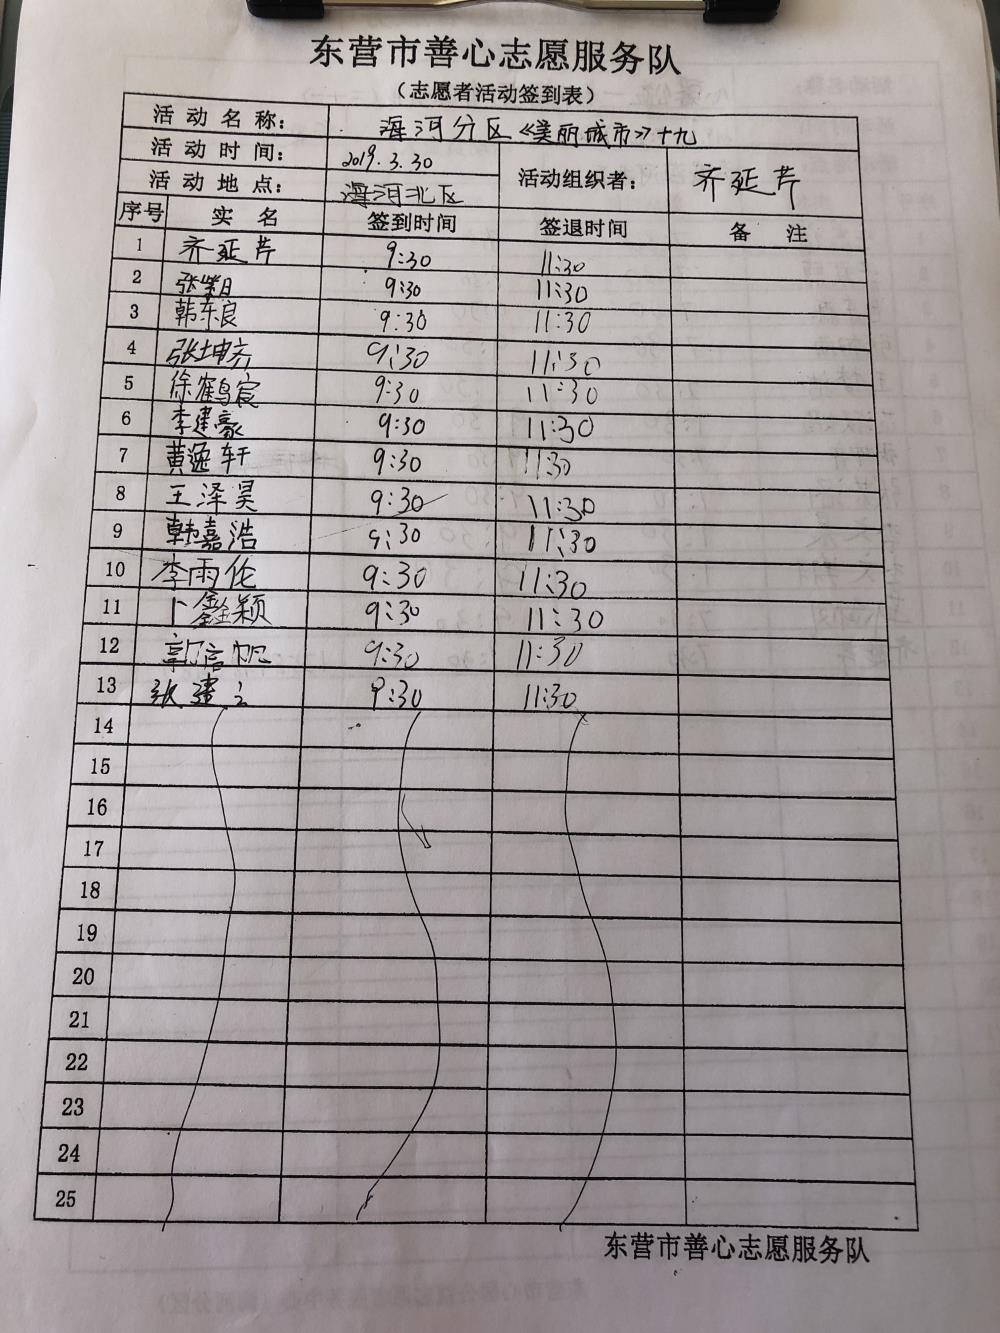 东营市善心志愿服务队
(志愿者活动签到表)
活动名称: 海河分区《美丽城市》十九
活动时间: 2019.3.30
活动组织者: 齐延芹
活动地点: 海河北区
序号 实名 签到时间 签退时间 备注
1 齐延芹 9:30 11:30
2 9:30 11:30
3 韩东良 9:30 11:30
4 张坤 9:30 11:30
5 徐鹤宸 9:30 11:30
6 李建豪 9:30 11:30
7 黄逸轩 9:30 11:30
8 王泽昊 9:30 11:30
9 韩嘉浩 9:30 11:30
10 李雨伦 9:30 11:30
11 卜鑫颖 9:30 11:30
12 郭信帆 9:30 11:30
13 张建 9:30 11:30
14
15
16
17
18
19
20
21
22
23
24
25
东营市善心志愿服务队